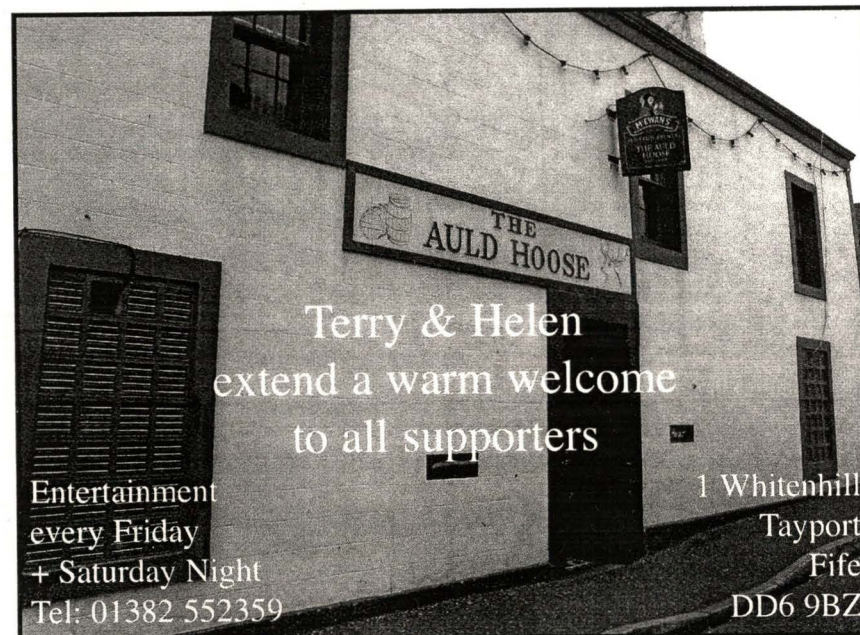 McEWAN'S
THE AULD
HOOSE
THE
AULD HOOSE
Terry & Helen
extend a warm welcome
to all supporters
Entertainment
every Friday
+ Saturday Night
Tel: 01382 552359
1 Whitenhill
Tayport
Fife
DD6 9BZ